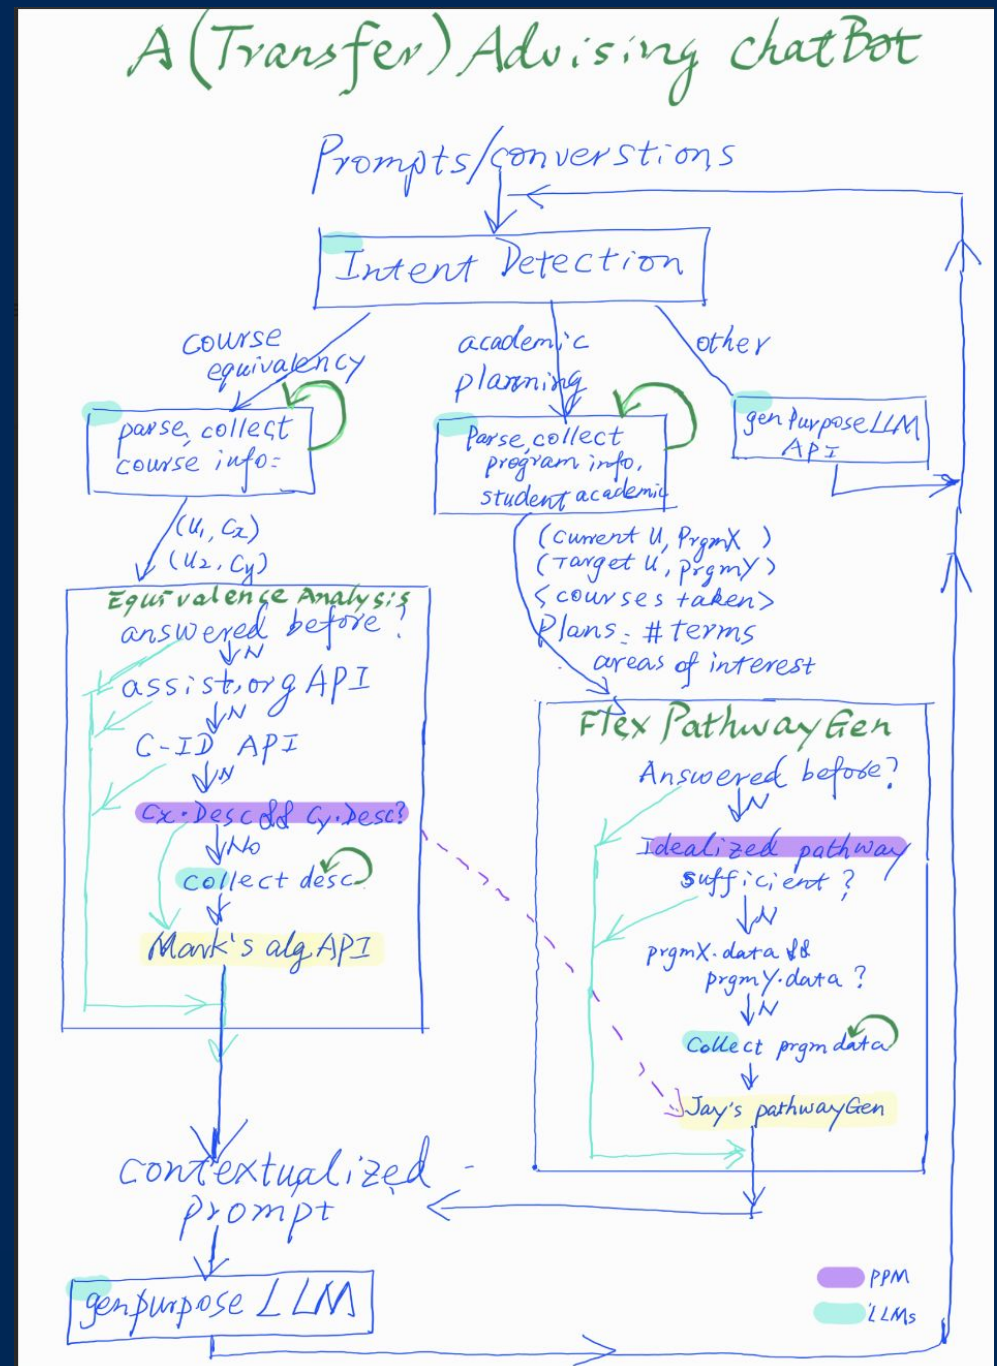 A (Transfer) Advising chatBot
Prompts/converstions
Intent Detection
course
equivalency
academic
planning
other
parse, collect
course info:
Parse, collect
program info,
student academic
gen Purpose LLM
API
(U1, Cx)
(U2, Cy)
(Current U, PrgmX )
(Target U, PrgmY)
<courses taken>
Plans: # terms
areas of interest
Equivalence Analysis
answered before?
N
assist.org API
N
C-ID API
N
Cx.Desc && Cy.Desc?
No
collect desc
Mark's alg API
Flex PathwayGen
Answered before?
N
Idealized pathway
sufficient?
N
prgmX.data &&
prgmY.data ?
N
Collect prgm data
Jay's pathwayGen
contextualized
prompt
genpurpose LLM
PPM
LLMs